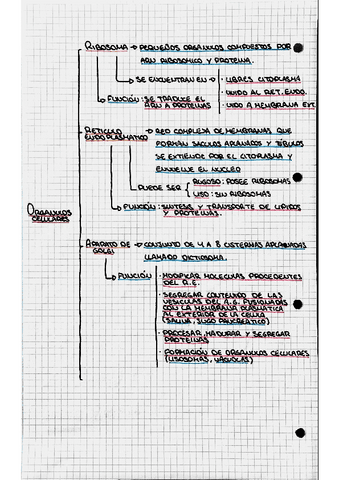 RIBOSOMA → PEQUEÑOS ORGANULOS COMPUESTOS POR
ARN RIBOSOMICO Y PROTEINA.
SE ENCUENTRAN EN → · LIBRES CITOPLASMA
· UNIDO AL RET. ENDO.
· UIDO A MEMBRANA EXT.
FUNCIÓN: SE TRADUCE EL
ARN A PROTEINAS
RETICULO
ENDOPLASMATICO → RED COMPLEJA DE MEMBRANAS QUE
FORMAN SACULOS APLANADOS Y TÚBULOS
SE EXTIENDE POR EL CITOPLASMA Y
ENVUELVE EL NÚCLEO
PUEDE SER
RUGOSO: POSEE RIBOSOMAS
LISO: SIN RIBOSOMAS
FUNCIÓN: SINTESIS Y TRANSPORTE DE LIPIDOS
Y PROTEINAS.
ORGANULOS
CELULARES
APARATO DE
GOLGI → CONJUNTO DE 4 A 8 CISTERNAS APLANADAS
LLAMADO DICTIOSOMA.
FUNCIÓN
· MODIFICAR MOLECULAS PROCEDENTES
DEL R.E.
· SEGREGAR CONTENIDO DE LAS
VESICULAS DEL A.G. FUSIONADAS
CON LA MEMBRANA PLASMÁTICA
AL EXTERIOR DE LA CELULA
(SALIVA, JUGO PANCREATICO)
· PROCESAR, MADURAR Y SEGREGAR
PROTEINAS
· FORMACIÓN DE ORGANULOS CELULARES
(LISOSOMAS, VACUOLAS)